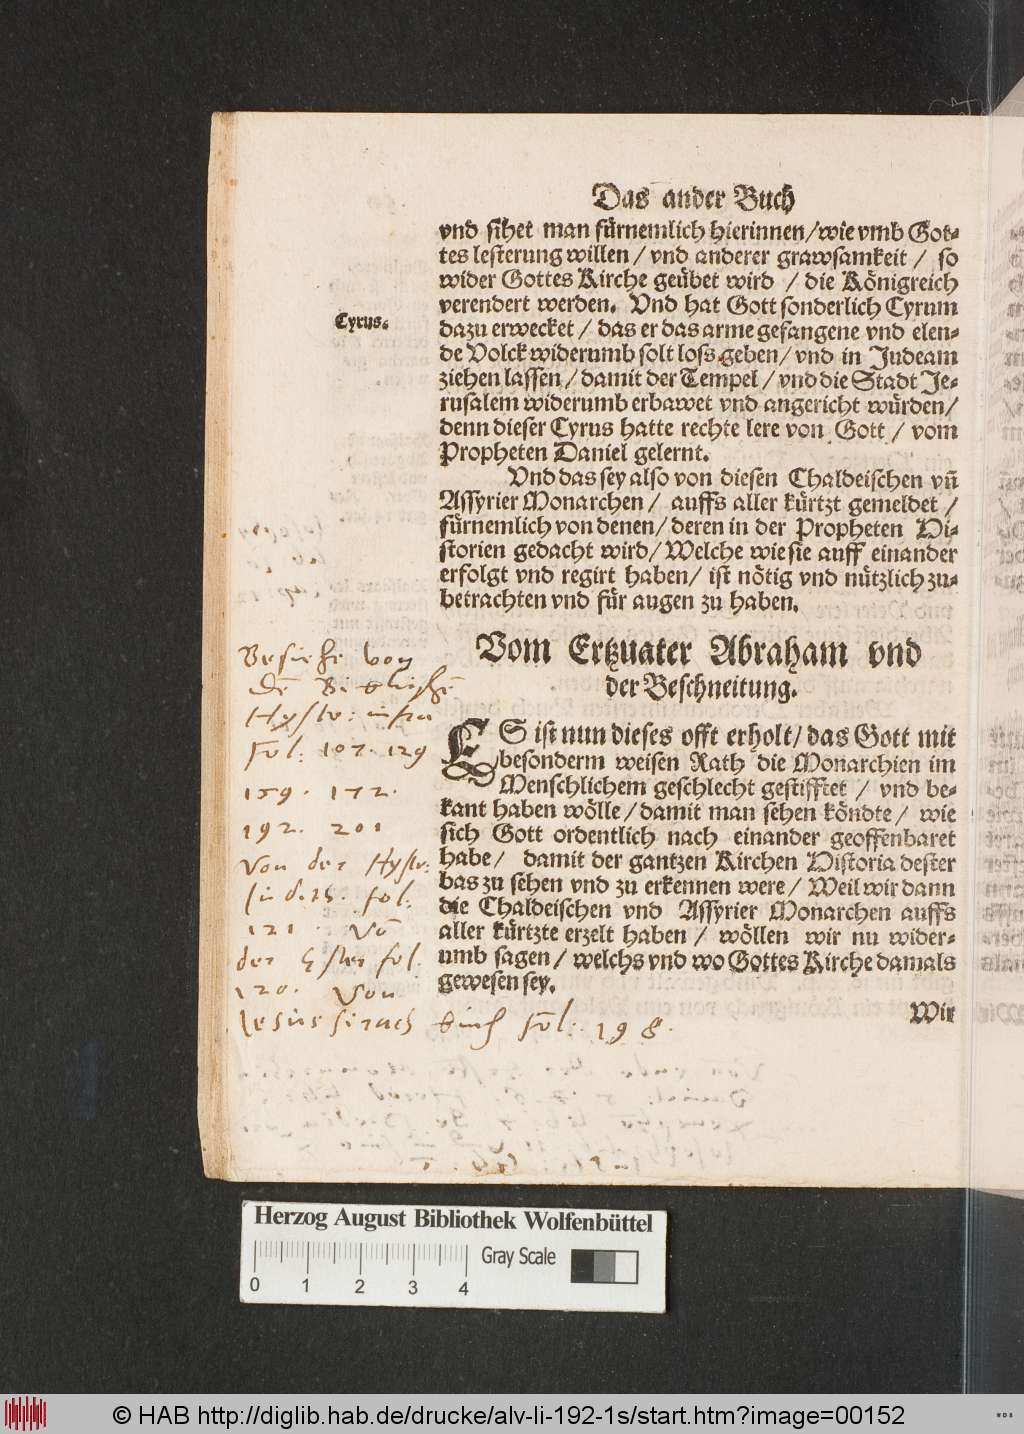 Das ander Buch
vnd sihet man fürnemlich hierinnen/wie vmb Got-
tes lesterung willen / vnd anderer grawsamkeit / so
wider Gottes Kirche geübet wird / die Königreich
verendert werden. Vnd hat Gott sonderlich Cyrum
Cyrus.
dazu erwecket / das er das arme gefangene vnd elen-
de Volck widerumb solt loss geben/ vnd in Judeam
ziehen lassen / damit der Tempel / vnd die Stadt Je-
rusalem widerumb erbawet vnd angericht würden/
denn dieser Cyrus hatte rechte lere von Gott / vom
Propheten Daniel gelernt.
Vnd das sey also von diesen Chaldeischen vñ
Assyrier Monarchen / auffs aller kürtzt gemeldet /
fürnemlich von denen/ deren in der Propheten Hi-
storien gedacht wird/ Welche wie sie auff einander
erfolgt vnd regirt haben/ ist nötig vnd nützlich zu-
betrachten vnd für augen zu haben.
Vom Ertzuater Abraham vnd
der Beschneitung.
ES ist nun dieses offt erholt/ das Gott mit
besonderm weisen Rath die Monarchien im
Menschlichem geschlecht gestifftet / vnd be-
kant haben wölle / damit man sehen köndte / wie
sich Gott ordentlich nach einander geoffenbaret
habe / damit der gantzen Kirchen Historia dester
bas zu sehen vnd zu erkennen were / Weil wir dann
die Chaldeischen vnd Assyrier Monarchen auffs
aller kürtzte erzelt haben / wöllen wir nu wider-
umb sagen / welchs vnd wo Gottes Kirche damals
gewesen sey.
Wir
Besiehe von
Hystor: infra
Fol: 107. 129
159. 172.
192. 201
Von der Hystor:
fol:
121. Vō
der Hester fol.
120. Von
Jesus sirach buch Fol: 198.
Herzog August Bibliothek Wolfenbüttel
Gray Scale
0 1 2 3 4
© HAB http://diglib.hab.de/drucke/alv-li-192-1s/start.htm?image=00152